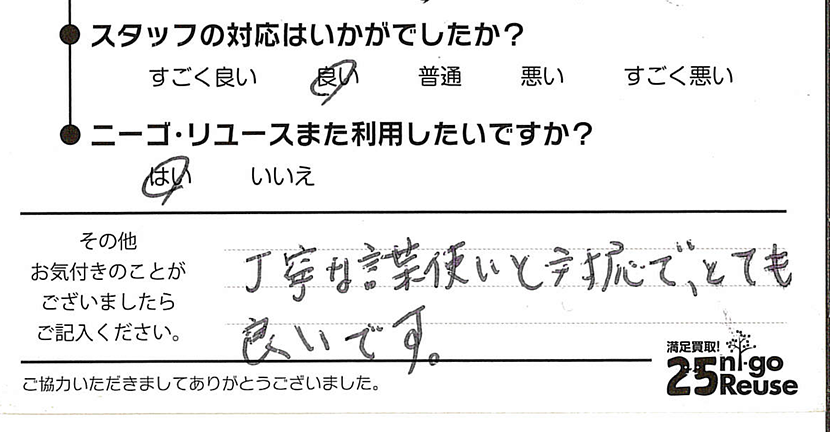 スタッフの対応はいかがでしたか？
すごく良い 良い 普通 悪い すごく悪い
ニーゴ・リユースまた利用したいですか？
はい いいえ
その他
お気付きのことが
ございましたら
ご記入ください。
丁寧な言葉使いと対応で、とても
良いです。
満足買取!
25 ni-go
Reuse
ご協力いただきましてありがとうございました。